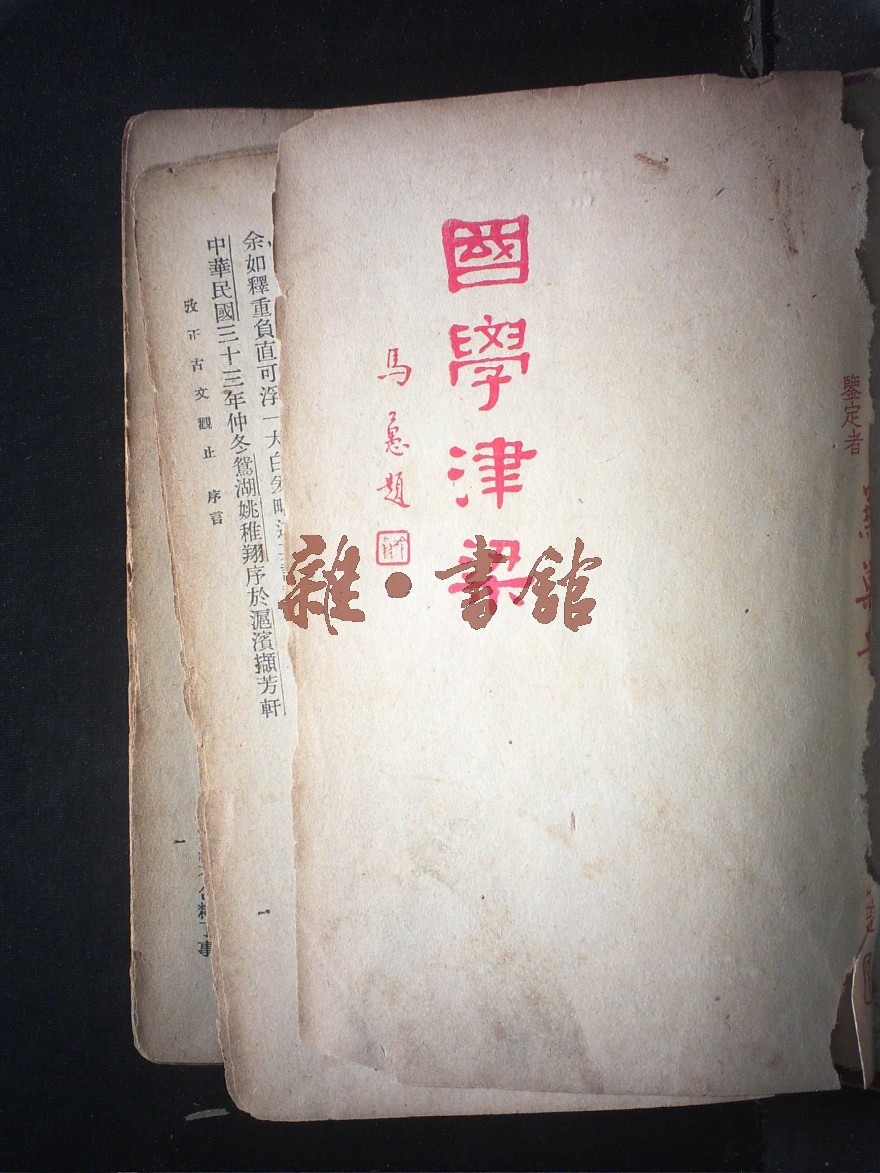 鑒定者
國學津梁
馬愚題
雜·書館
余如釋重負直可浮一大白
中華民國三十三年仲冬鴛湖姚稚翔序於滬濱擷芳軒
攷正古文觀止 序言
一
一